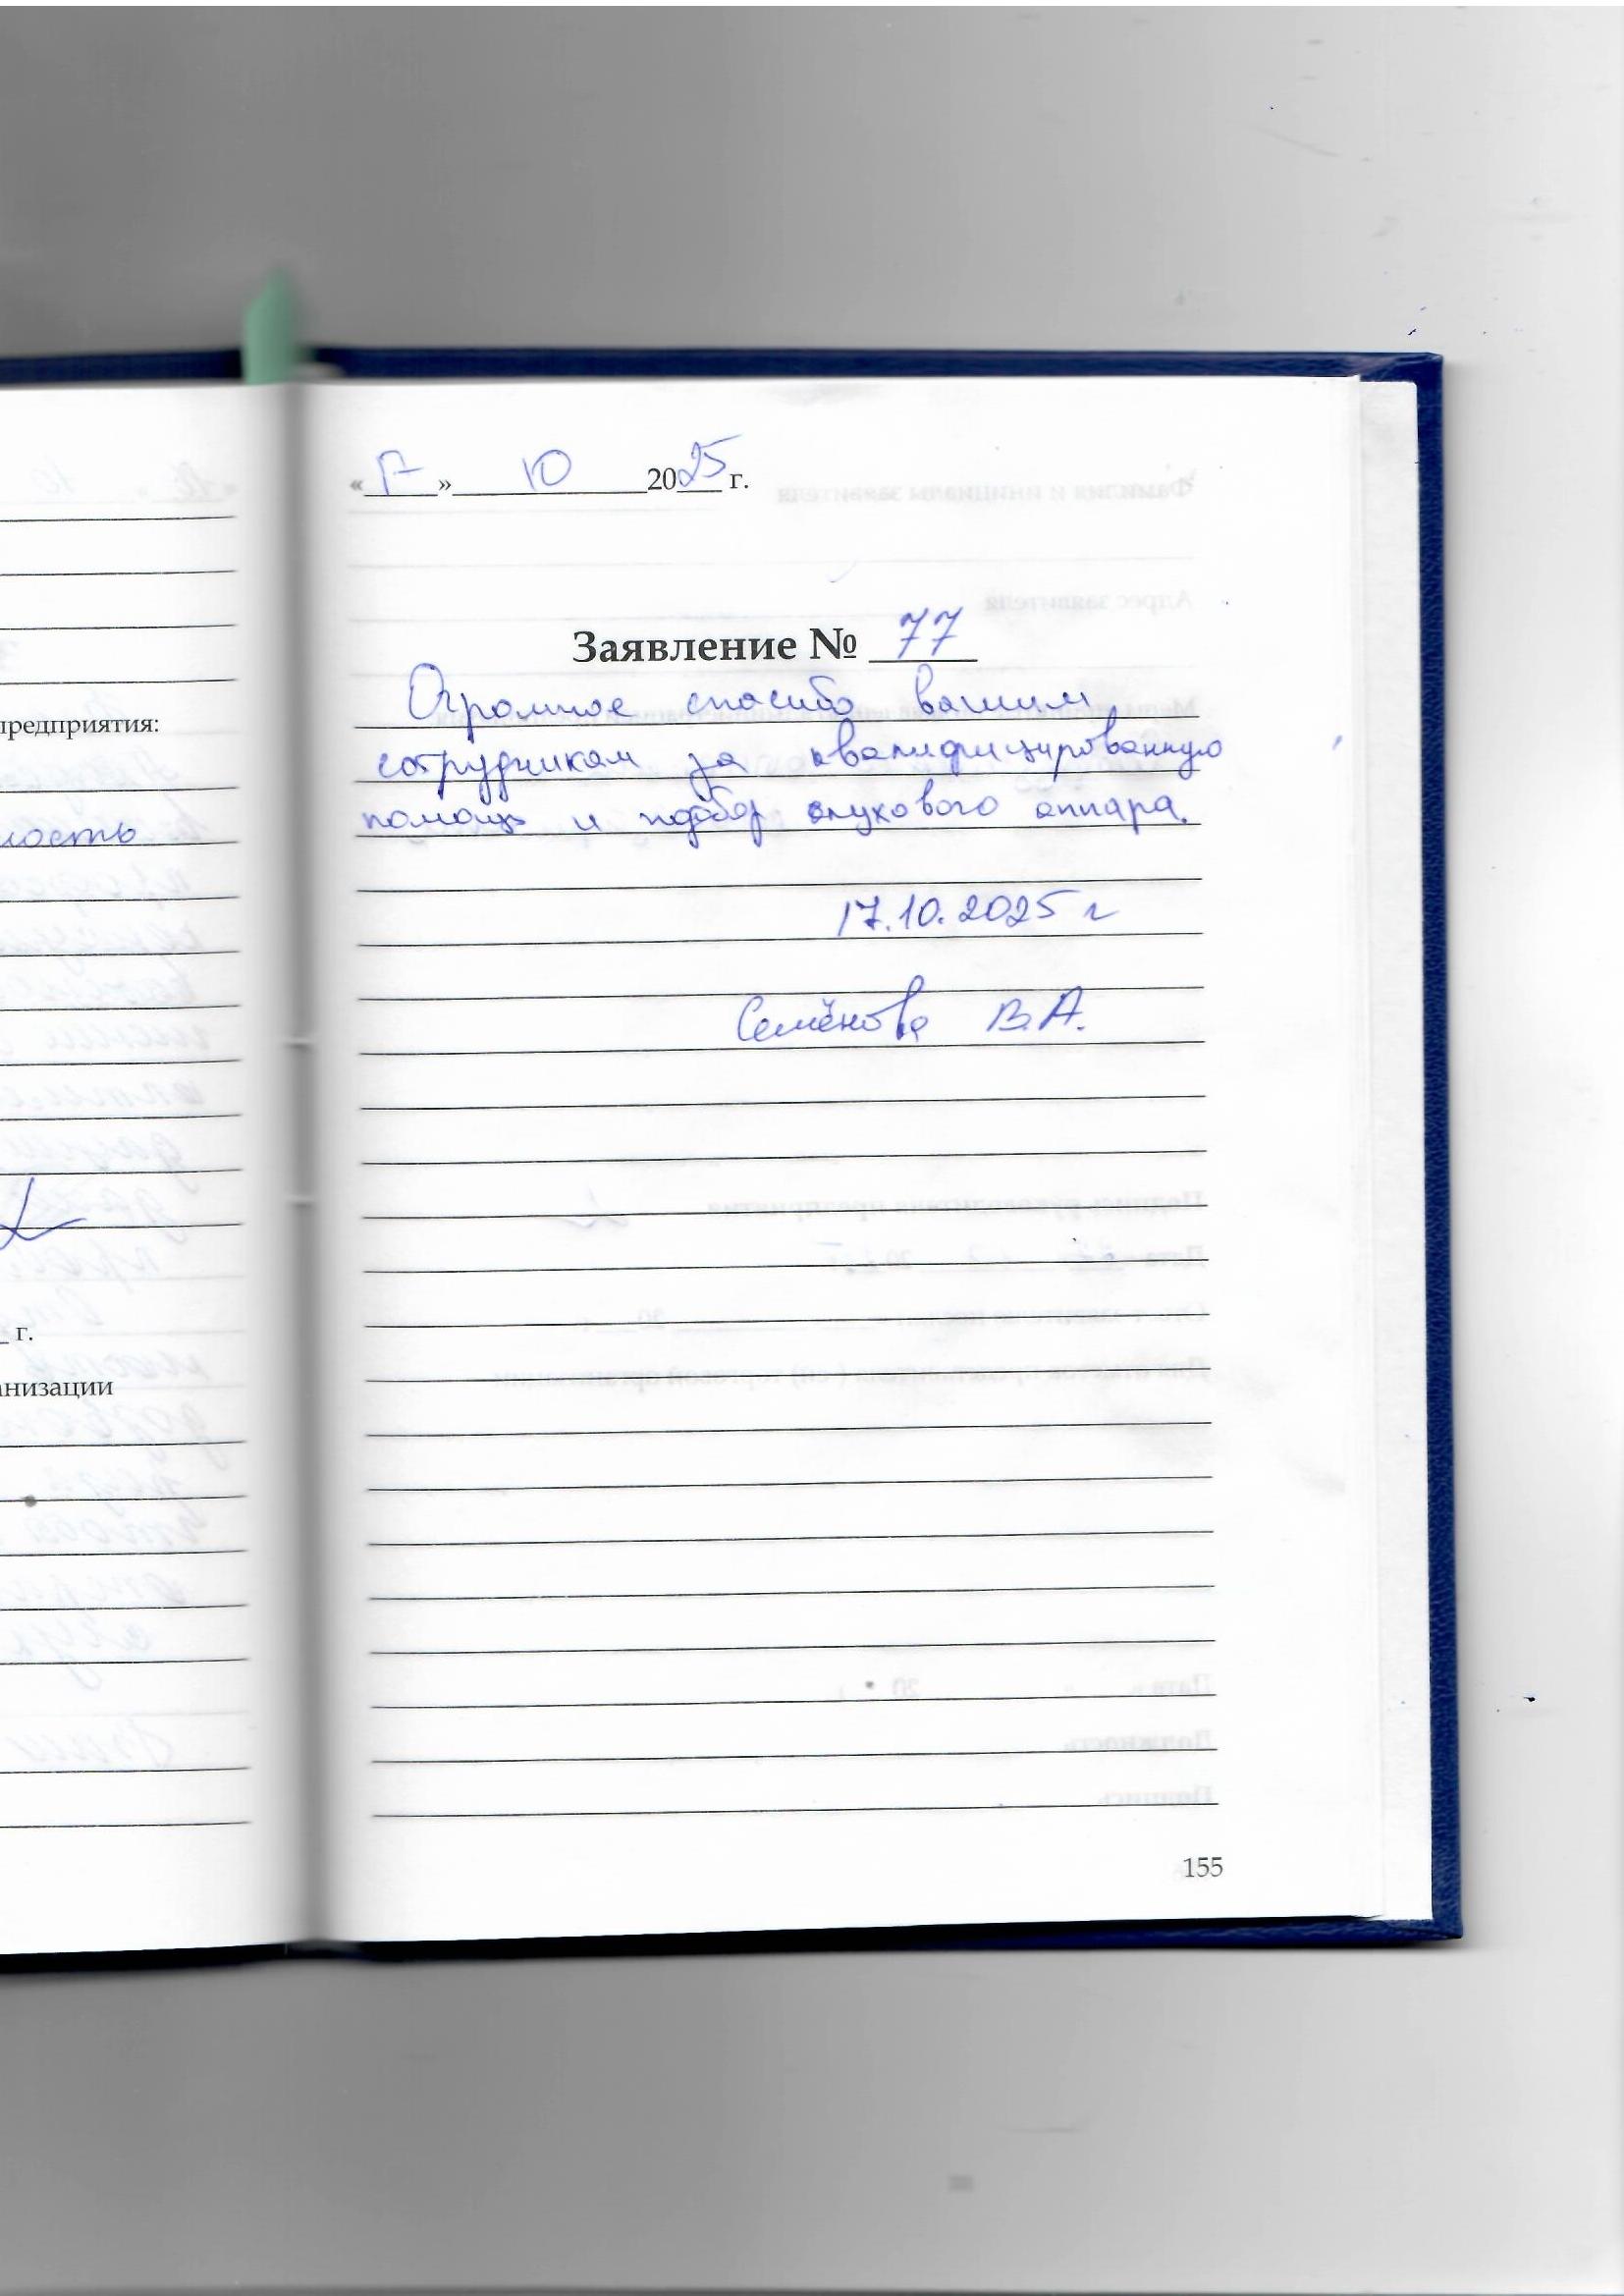 предприятия:
ность
г.
анизации
«17» 10 2025 г.
Заявление № 77
Огромное спасибо вашим
сотрудникам за квалифицированную
помощь и подбор слухового аппара.
17.10.2025 г
Семёнова В.А.
155